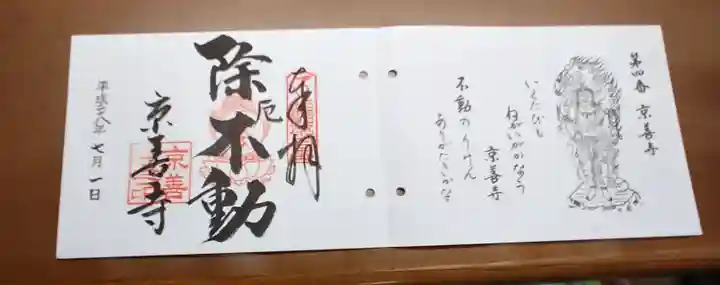 第四番 京善寺
いくたびも
ねがいがかなう
京善寺
不動のりやくん
ありがたいかな
奉拝
除厄不動
京善寺
平成二八年 七月 一日